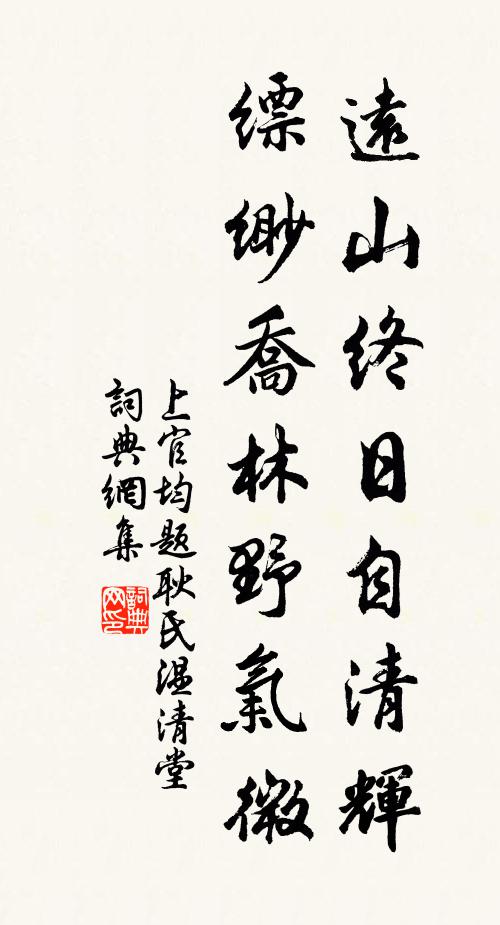 遠山終日自清輝
縹緲喬林野氣微
上官均题耿氏温清堂
詞典網集
詞典网印